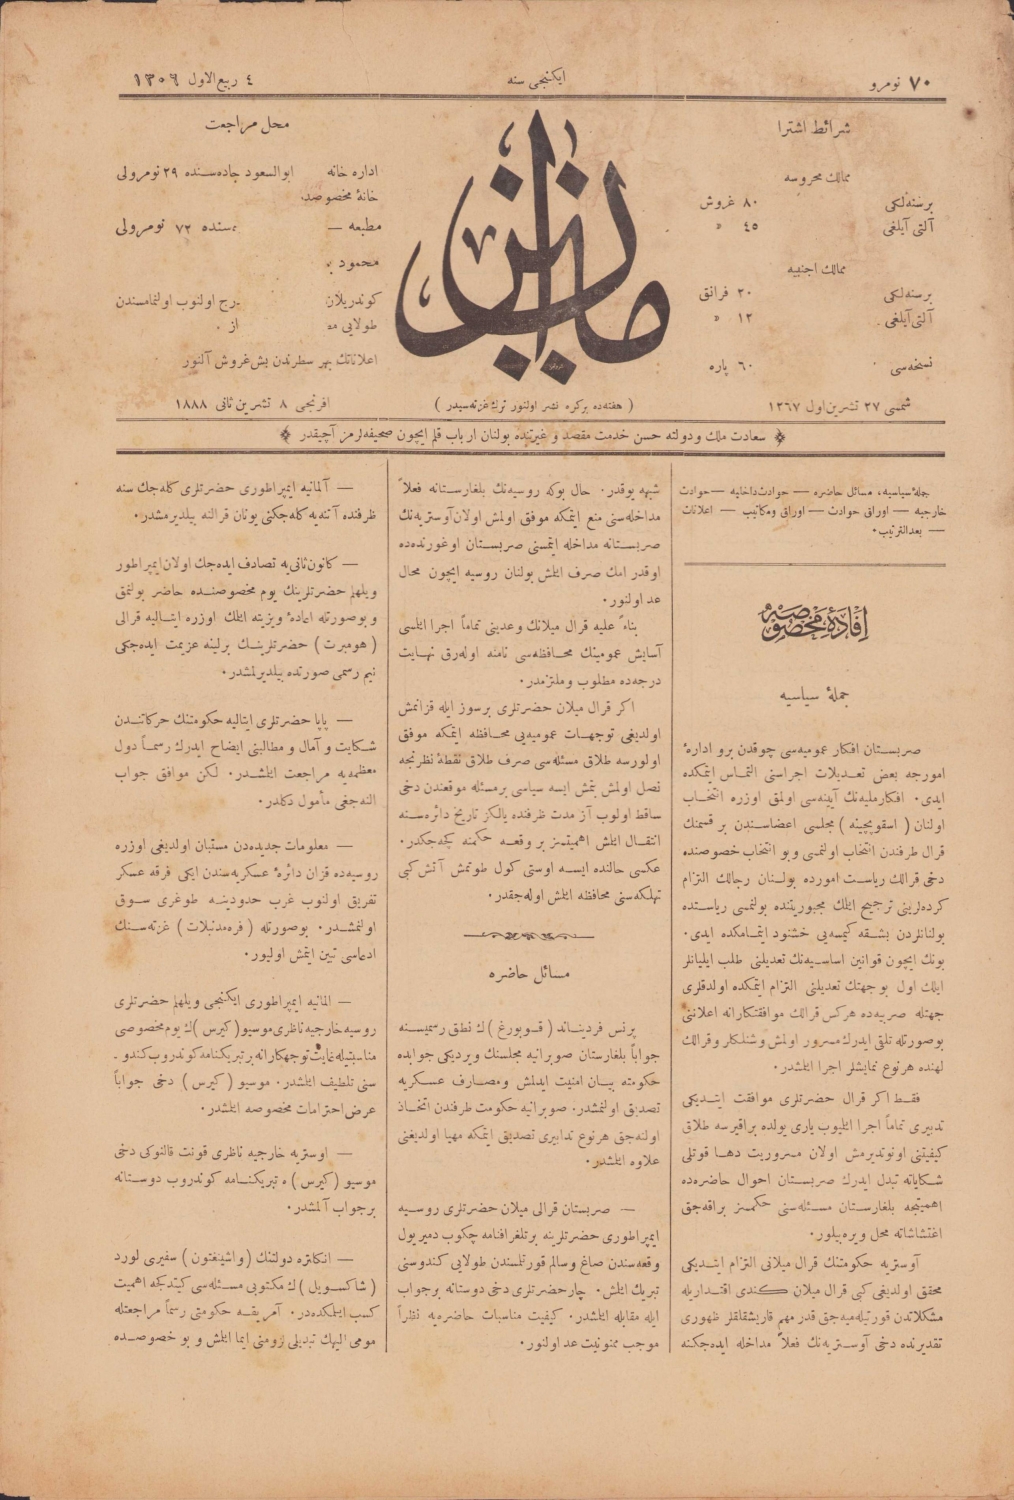 ٧٠ نومرو
ايكنجى سنه
٤ ربيع الاول ١٣٠٦
شرائط اشترا
ممالك محروسه
برسنه‌لكى ٨٠ غروش
آلتى آيلغى ٤٥ »
ممالك اجنبيه
برسنه‌لكى ٢٠ فرانق
آلتى آيلغى ١٢ »
نسخه‌سى ٦٠ پاره
شمسى ٢٧ تشرين اول ١٢٦٧
ميزان
( هفته‌ده بركره نشر اولنور ترك غزته‌سيدر )
محل مراجعت
اداره خانه ابوالسعود جاده‌سنده ٢٩ نومرولى
خانهٔ مخصوصده
مطبعه — سنده ٧٢ نومرولى
محمود ب
كوندريلان درج اولنوب اولنمامسندن
طولايى از
اعلاناتك بهر سطرندن بش غروش آلنور
افرنجى ٨ تشرين ثانى ١٨٨٨
سعادت ملك ودولته حسن خدمت مقصد و غيرتنده بولنان ارباب قلم ايچون صحيفه‌لرمز آچيقدر
جملهٔ سياسيه، مسائل حاضره — حوادث داخليه — حوادث
خارجيه — اوراق حوادث — اوراق ومكاتيب — اعلانات
— بعدالترتيب.
افادهٔ مخصوصه
جملهٔ سياسيه
صربستان افكار عموميه‌سى چوقدن برو ادارهٔ
امورجه بعض تعديلات اجراسنى التماس ايتمكده
ايدى. افكار مليه‌نك آيينه‌سى اولمق اوزره انتخاب
اولنان ( اسقوپچينه ) مجلسى اعضاسندن بر قسمنك
قرال طرفندن انتخاب اولنمسى وبو انتخاب خصوصنده
دخى قرالك رياست امورده بولنان رجالك التزام
كرده‌لرينى ترجيح ايتمك مجبوريتنده بولنمسى رياستده
بولنانلردن بشقه كيمسه‌يى خشنود ايتمامكده ايدى.
بونك ايچون قوانين اساسيه‌نك تعديلنى طلب ايليانلر
ايلك اول بو جهتك تعديلنى التزام ايتمكده اولدقلرى
جهتله صربيه‌ده هركس قرالك موافقتكارانه اعلاننى
بوصورتله تلقى ايدرك مسرور اولمش وشنلكلر وقرالك
لهنده هرنوع نمايشلر اجرا ايتمشدر.
فقط اكر قرال حضرتلرى موافقت ايتديكى
تدبيرى تماماً اجرا ايتميوب يارى يولده براقيرسه طلاق
كيفيتنى اونوتديرمش اولان مسروريت دها قوتلى
شكاياته تبدل ايدرك صربستان احوال حاضره‌ده
اهميتجه بلغارستان مسئله‌سنى حكمسز براقه‌جق
اغتشاشاته محل ويره‌بيلور.
آوستريه حكومتنك قرال ميلانى التزام ايتديكى
محقق اولديغى كبى قرال ميلان كندى اقتداريله
مشكلاتدن قورتيله‌ميه‌جق قدر مهم قاريشقلقلر ظهورى
تقديرنده دخى آوستريه‌نك فعلاً مداخله ايده‌جكنه
شبهه يوقدر. حال بوكه روسيه‌نك بلغارستانه فعلاً
مداخله‌سنى منع ايتمكه موفق اولمش اولان آوستريه‌نك
صربستانه مداخله ايتمسنى صربستان اوغورنده‌ده
اوقدر امك صرف ايتمش بولنان روسيه ايچون محال
عد اولنور.
بناءً عليه قرال ميلانك وعدينى تماماً اجرا ايتمسى
آسايش عمومينك محافظه‌سى نامنه اوله‌رق نهايت
درجه‌ده مطلوب وملتزمدر.
اكر قرال ميلان حضرتلرى برسوز ايله قزانمش
اولديغى توجهات عموميه‌يى محافظه ايتمكه موفق
اولورسه طلاق مسئله‌سى صرف طلاق نقطهٔ نظرنجه
نصل اولمش بتمش ايسه سياسى برمسئله موقعندن دخى
ساقط اولوب آز مدت ظرفنده يالكز تاريخ دائره‌سنه
انتقال ايتمش اهميتسز بر وقعه حكمنه كچه‌جكدر.
عكسى حالنده ايسه اوستى كول طوتمش آتش كبى
تهلكه‌سنى محافظه ايتمش اوله‌جقدر.
مسائل حاضره
پرنس فرديناند ( قوبورغ ) ك نطق رسميسنه
جواباً بلغارستان صوبرانيه مجلسنك ويرديكى جوابده
حكومته بيان امنيت ايدلمش ومصارف عسكريه
تصديق اولنمشدر. صوبرانيه حكومت طرفندن اتخاذ
اولنه‌جق هرنوع تدابيرى تصديق ايتمكه مهيا اولديغنى
علاوه ايتمشدر.
— صربستان قرالى ميلان حضرتلرى روسيه
ايمپراطورى حضرتلرينه برتلغرافنامه چكوب دميريول
وقعه‌سندن صاغ وسالم قورتلمسندن طولايى كندوسنى
تبريك ايتمش. چار حضرتلرى دخى دوستانه برجواب
ايله مقابله ايتمشدر. كيفيت مناسبات حاضره‌يه نظراً
موجب ممنونيت عد اولنور.
— آلمانيه ايمپراطورى حضرتلرى كله‌جك سنه
ظرفنده آتنه‌يه كله‌جكنى يونان قرالنه بيلديرمشدر.
— كانون ثانى‌يه تصادف ايده‌جك اولان ايمپراطور
ويلهلم حضرتلرينك يوم مخصوصنده حاضر بولنمق
و بوصورتله اعادهٔ ويزيته ايتمك اوزره ايتاليه قرالى
( هومبرت ) حضرتلرينك برلينه عزيمت ايده‌جكى
نيم رسمى صورتده بيلديرلمشدر.
— پاپا حضرتلرى ايتاليه حكومتنك حركاتندن
شكايت و آمال و مطالبنى ايضاح ايدرك رسماً دول
معظمه‌يه مراجعت ايتمشدر. لكن موافق جواب
النه‌جغى مأمول دكلدر.
— معلومات جديده‌دن مستبان اولديغى اوزره
روسيه‌ده قزان دائرهٔ عسكريه‌سندن ايكى فرقه عسكر
تفريق اولنوب غرب حدودينه طوغرى سوق
اولنمشدر. بوصورتله ( فره‌مدنبلات ) غزته‌سنك
ادعاسى تبين ايتمش اوليور.
— المانيه ايمپراطورى ايكنجى ويلهلم حضرتلرى
روسيه خارجيه ناظرى موسيو ( كيرس ) ك يوم مخصوصى
مناسبتيله نهايت توجهكارانه برتبريكنامه كوندروب كندو-
سنى تلطيف ايتمشدر. موسيو ( كيرس ) دخى جواباً
عرض احترامات مخصوصه ايتمشدر.
— اوستريه خارجيه ناظرى قونت قالنوكى دخى
موسيو ( كيرس ) ه تبريكنامه كوندروب دوستانه
برجواب آلمشدر.
— انكلتره دولتنك ( واشينغتون ) سفيرى لورد
( شاكسويل ) ك مكتوبى مسئله‌سى كيتدكجه اهميت
كسب ايتمكده‌در. آمريقه حكومتى رسماً مراجعتله
مومى اليهك تبديلى لزومنى ايما ايتمش و بو خصوصده